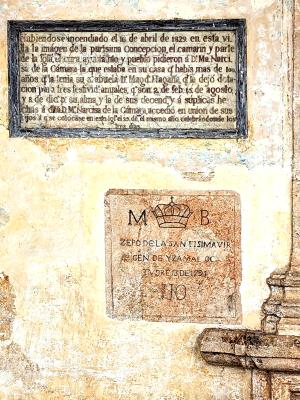 Habiendose incendiado el 16 de abril de 1829 en esta vi
lla la imágen de la purisima Concepcion, el camarin y parte
de la Igla. el cura, ayuntamto. y pueblo pidieron á Da. Ma. Narci
sa de la Cámara la que estaba en su casa qe. habia mas de 100
años, qe. la tenia su 4a. abuela Da. Magda. Magaña, qe. la dejó dota
cion para tres festivids. anuales, qe. son, 2 de feb. 15 de agosto,
y 8 de dice. pr. su alma, y la de sus decendts. y á súplicas he
chas á dha Da. Ma. Narcisa de la Cámara accedió en union de sus
á qe. se colocáse en esta igla. el 12 de el mismo año, celebrándole los
tres dias.
M B
ZEPO DE LA SANTISIMA VIR
GEN DE YZAMAL OC
TVBRE DE